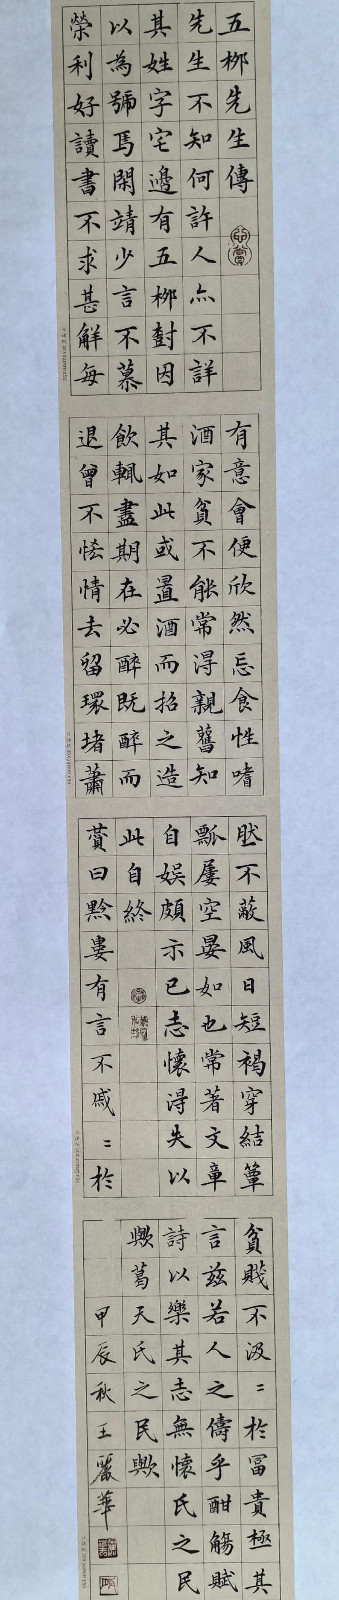 五栁先生傳
先生不知何許人亦不詳
其姓字宅邊有五栁樹因
以為號焉閑靖少言不慕
榮利好讀書不求甚解每
有意會便欣然忘食性嗜
酒家貧不能常得親舊知
其如此或置酒而招之造
飲輒盡期在必醉既醉而
退曾不恡情去留環堵蕭
然不蔽風日短褐穿結簞
瓢屢空晏如也常著文章
自娛頗示己志懷得失以
此自終
贊曰黔婁有言不戚〻於
貧賤不汲〻於富貴極其
言茲若人之儔乎酣觴賦
詩以樂其志無懷氏之民
歟葛天氏之民歟
甲辰秋王麗華